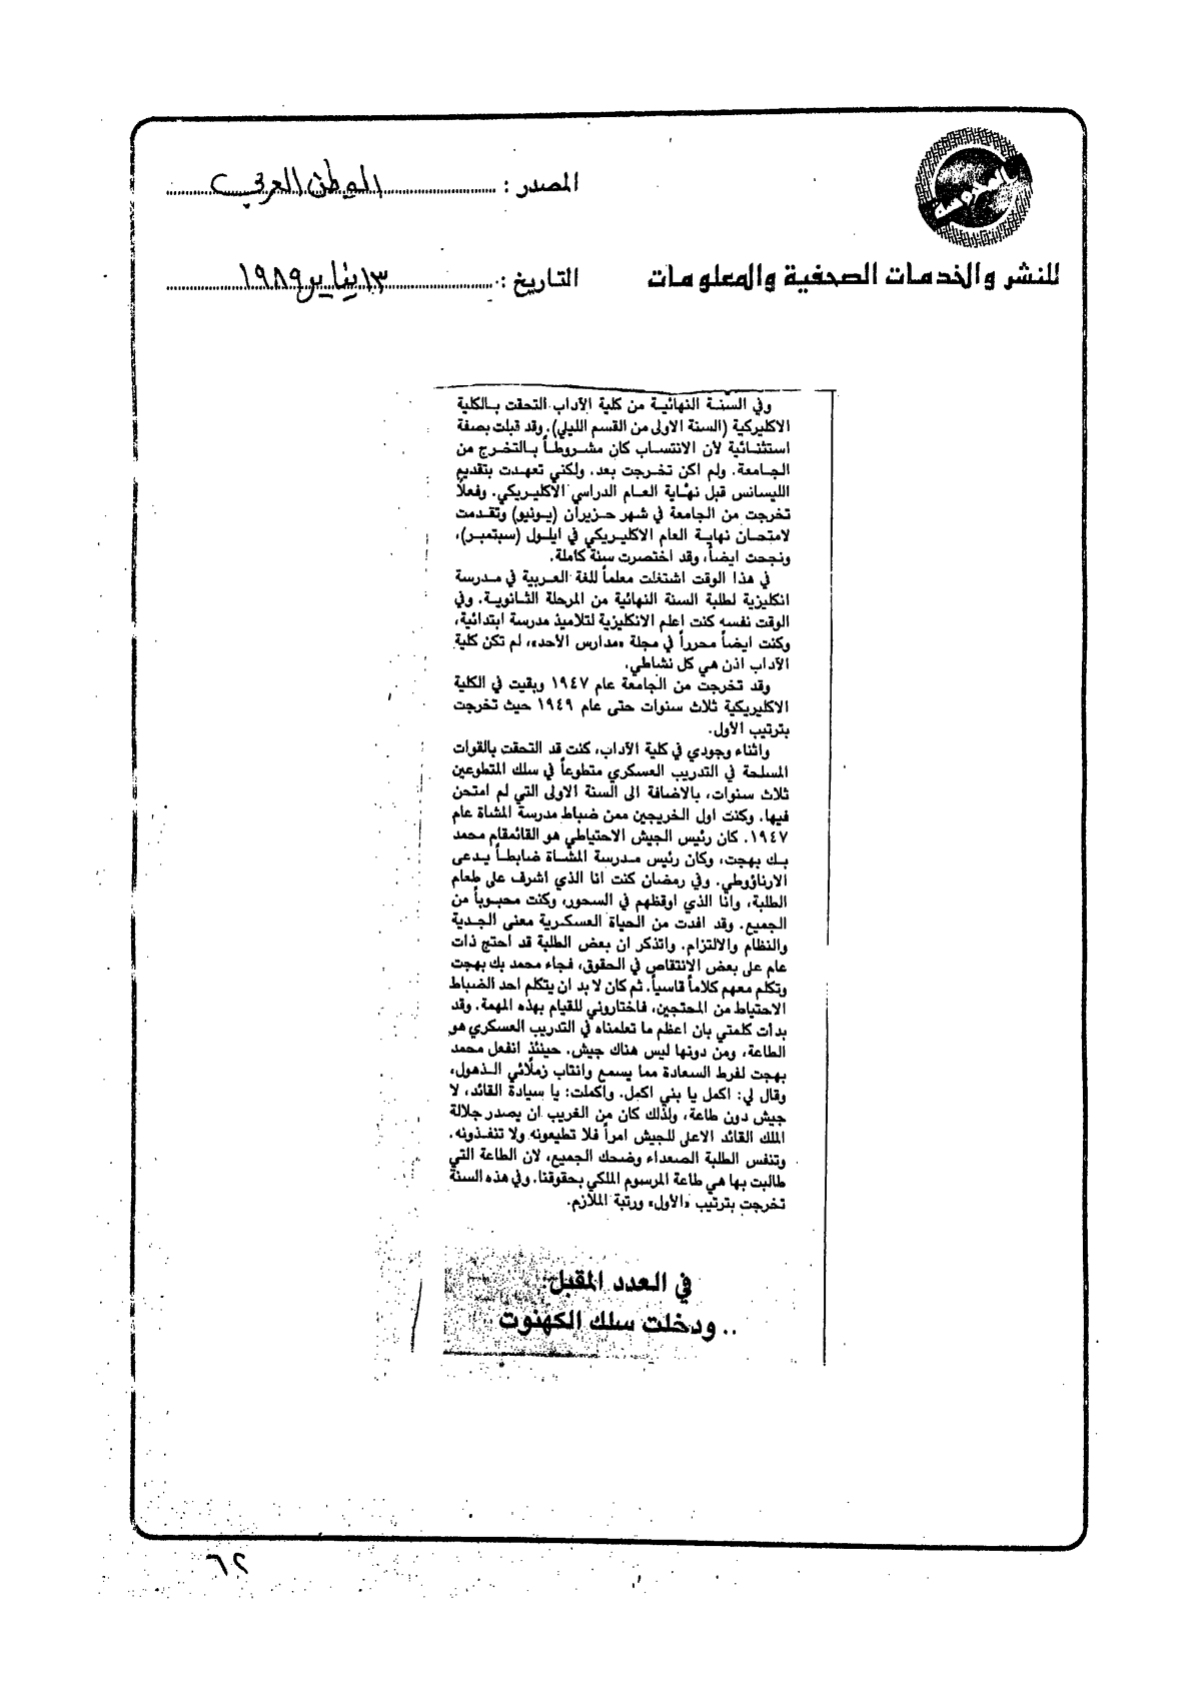 المحروسة
المصدر : الوطن العربي
للنشر والخدمات الصحفية والمعلومات
التاريخ : ١٣ يناير ١٩٨٩
وفي السنة النهائية من كلية الآداب التحقت بالكلية
الاكليركية (السنة الاولى من القسم الليلي). وقد قبلت بصفة
استثنائية لأن الانتساب كان مشروطاً بالتخرج من
الجامعة. ولم اكن تخرجت بعد. ولكني تعهدت بتقديم
الليسانس قبل نهاية العام الدراسي الاكليريكي. وفعلاً
تخرجت من الجامعة في شهر حزيران (يونيو) وتقدمت
لامتحان نهاية العام الاكليريكي في ايلول (سبتمبر)،
ونجحت ايضاً، وقد اختصرت سنة كاملة.
في هذا الوقت اشتغلت معلماً للغة العربية في مدرسة
انكليزية لطلبة السنة النهائية من المرحلة الثانوية. وفي
الوقت نفسه كنت اعلم الانكليزية لتلاميذ مدرسة ابتدائية،
وكنت ايضاً محرراً في مجلة «مدارس الأحد»، لم تكن كلية
الآداب اذن هي كل نشاطي.
وقد تخرجت من الجامعة عام ١٩٤٧ وبقيت في الكلية
الاكليريكية ثلاث سنوات حتى عام ١٩٤٩ حيث تخرجت
بترتيب الأول.
واثناء وجودي في كلية الآداب، كنت قد التحقت بالقوات
المسلحة في التدريب العسكري متطوعاً في سلك المتطوعين
ثلاث سنوات، بالاضافة الى السنة الاولى التي لم امتحن
فيها. وكنت اول الخريجين ممن ضباط مدرسة المشاة عام
١٩٤٧. كان رئيس الجيش الاحتياطي هو القائمقام محمد
بك بهجت، وكان رئيس مدرسة المشاة ضابطاً يدعى
الارناؤوطي. وفي رمضان كنت انا الذي اشرف على طعام
الطلبة، وانا الذي اوقظهم في السحور، وكنت محبوباً من
الجميع. وقد افدت من الحياة العسكرية معنى الجدية
والنظام والالتزام. واتذكر ان بعض الطلبة قد احتج ذات
عام على بعض الانتقاص في الحقوق، فجاء محمد بك بهجت
وتكلم معهم كلاماً قاسياً. ثم كان لا بد ان يتكلم احد الضباط
الاحتياط من المحتجين، فاختاروني للقيام بهذه المهمة. وقد
بدأت كلمتي بان اعظم ما تعلمناه في التدريب العسكري هو
الطاعة، ومن دونها ليس هناك جيش. حينئذ انفعل محمد
بهجت لفرط السعادة مما يسمع وانتاب زملائي الذهول،
وقال لي: اكمل يا بني اكمل. واكملت: يا سيادة القائد، لا
جيش دون طاعة، ولذلك كان من الغريب ان يصدر جلالة
الملك القائد الاعلى للجيش امراً فلا تطيعونه ولا تنفذونه.
وتنفس الطلبة الصعداء وضحك الجميع، لان الطاعة التي
طالبت بها هي طاعة المرسوم الملكي بحقوقنا. وفي هذه السنة
تخرجت بترتيب «الأول» ورتبة الملازم.
في العدد المقبل:
.. ودخلت سلك الكهنوت
٦٢